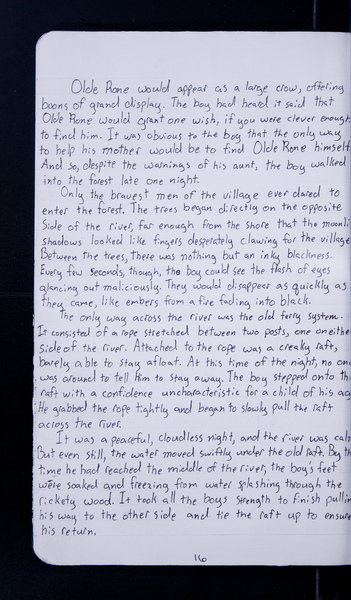 Olde Rone would appear as a large crow, offering
boons of grand display. The boy had heard it said that
Olde Rone would grant one wish, if you were clever enough
to find him. It was obvious to the boy that the only way
to help his mother would be to find Olde Rone himself.
And so, despite the warnings of his aunt, the boy walked
into the forest late one night.
Only the bravest men of the village ever dared to
enter the forest. The trees began directly on the opposite
side of the river, far enough from the shore that the moonli
shadows looked like fingers desperately clawing for the village
Between the trees, there was nothing but an inky blackness.
Every few seconds, though, the boy could see the flash of eyes
glancing out maliciously. They would disappear as quickly as
they came, like embers from a fire fading into black.
The only way across the river was the old ferry system.
It consisted of a rope stretched between two posts, one on eithe
side of the river. Attached to the rope was a creaky raft,
barely able to stay afloat. At this time of the night, no one
was around to tell him to stay away. The boy stepped onto th
raft with a confidence uncharacteristic for a child of his ag
He grabbed the rope tightly and began to slowly pull the raft
across the river.
It was a peaceful, cloudless night, and the river was calm
But even still, the water moved swiftly under the old raft. By th
time he had reached the middle of the river, the boy's feet
were soaked and freezing from water splashing through the
rickety wood. It took all the boys strength to finish pullin
his way to the other side and tie the raft up to ensure
his return.
16